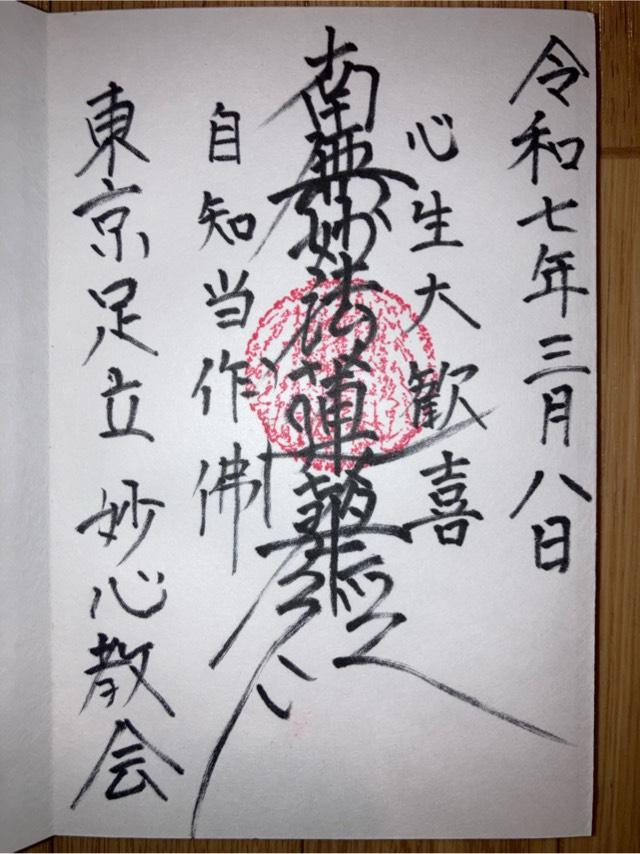 令和七年三月八日
心生大歓喜
南無妙法蓮華経
自知当作佛
東京足立 妙心教会